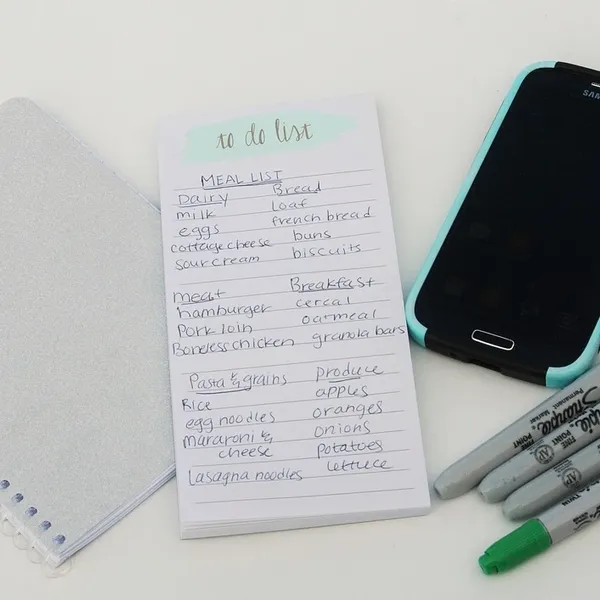 to do list
MEAL LIST
Dairy
milk
eggs
cottage cheese
sour cream
Bread
loaf
french bread
buns
biscuits
meat
hamburger
Pork loin
Boneless chicken
Breakfast
cereal
oatmeal
granola bars
Pasta & grains
Rice
egg noodles
mararoni &
cheese
lasagna noodles
produce
apples
oranges
onions
potatoes
lettuce
SAM
Sharpie
FINE POINT
Permanent Marker
FINE
POINT
TWIN